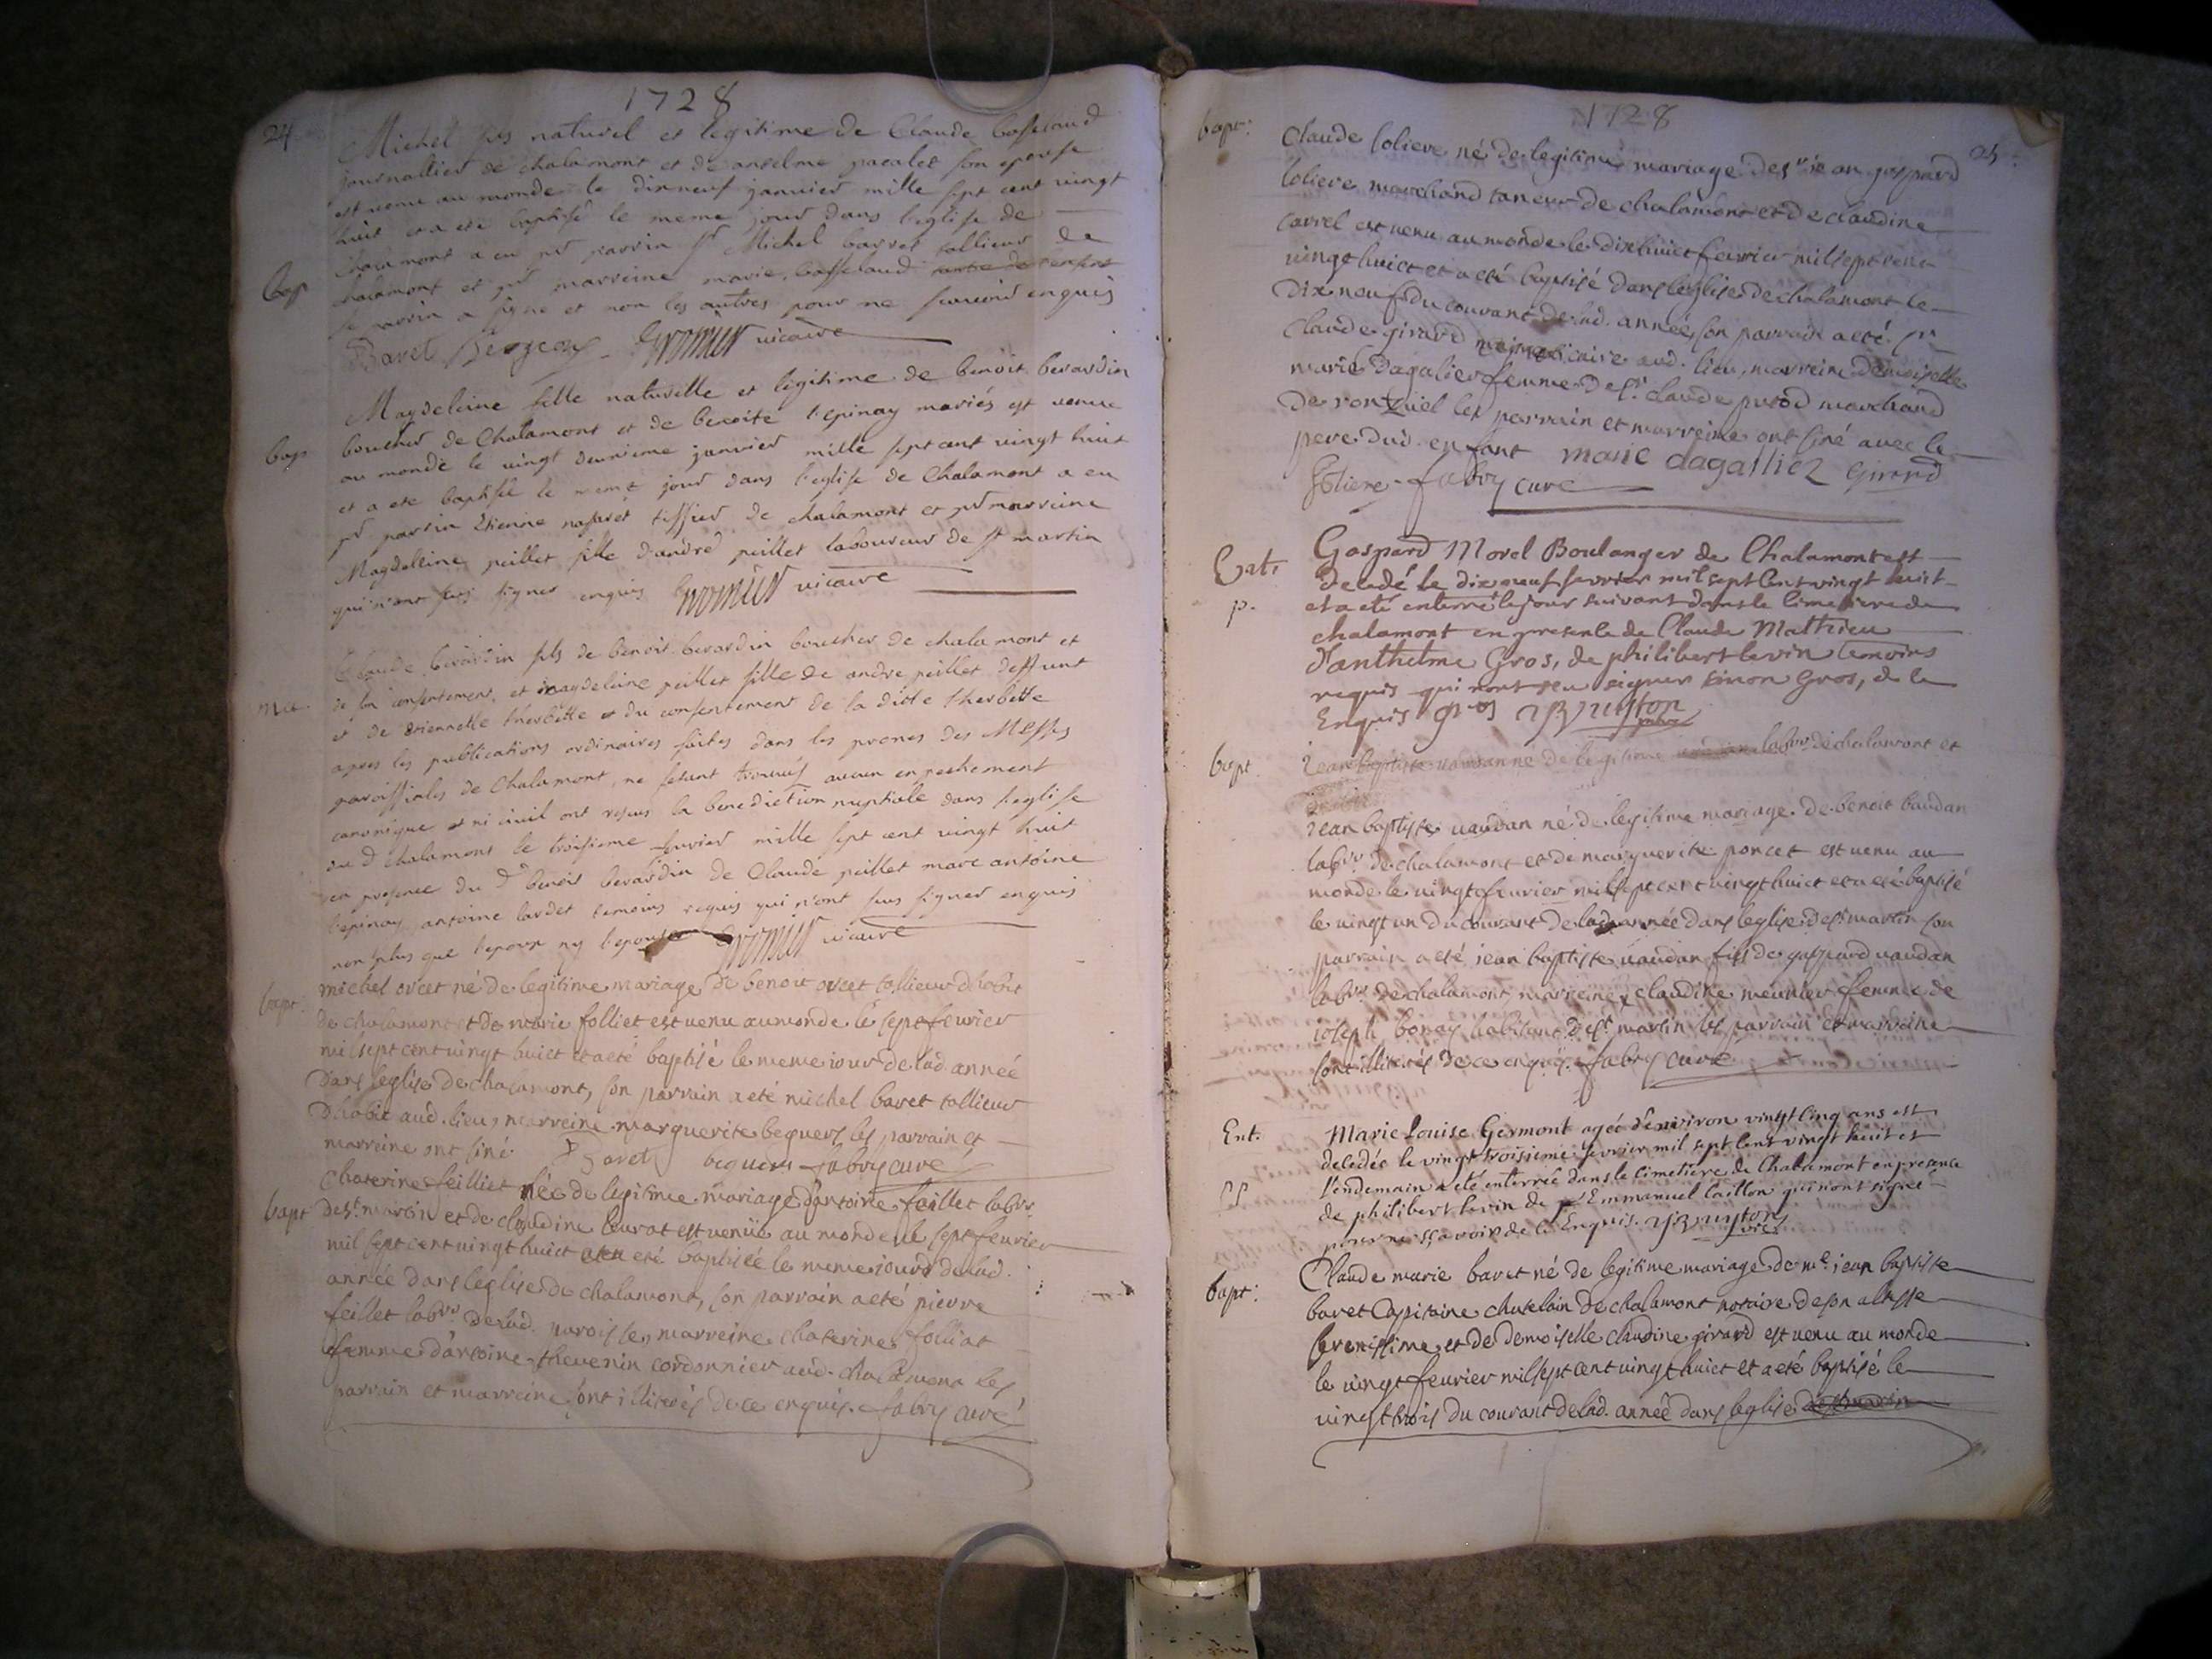 1728
24
Michel fils naturel et legitime de Claude
journallier de chalamont et de anselme pacalet son epouse
est venu au monde le dixneuf janvier mille sept cent vingt
huit et a eté baptisé le meme jour dans l'eglise de
chalamont a eu pr parrin sr Michel barret tallieur de
chalamont et pr marreine marie
le parrin a signé et non les autres pour ne scavoir enquis
Baret Gromier vicaire
bap
Magdeleine fille naturelle et legitime de benoit berardin
boucher de Chalamont et de benoite l'epinay mariés est venue
au monde le vingt deuxieme janvier mille sept cent vingt huit
et a ete baptisée le meme jour dans l'eglise de Chalamont a eu
pr parrin Etienne tissier de chalamont et pr marreine
Magdelleine peillet fille d'andré peillet laboureur de st martin
qui n'ont sus signer enquis Gromier vicaire
bap
Claude berardin fils de benoit berardin boucher de chalamont et
de son consentement, et magdeleine peillet fille de andre peillet deffunt
et de etiennette therbette et du consentement de la ditte therbette
apres les publications ordinaires faites dans les prones des Messes
paroissiales de Chalamont, ne setant trouvés aucun enpechement
canonique et ni civil ont reçus la benediction nuptiale dans l'eglise
du d chalamont le troisieme fevrier mille sept cent vingt huit
en presence du d benoit berardin de Claude peillet marc antoine
l'epinay antoine lardet temoins requis qui n'ont sus signer enquis
non plus que l'epoux ny l'epouse Gromier vicaire
mar
michel orcet né de legitime mariage de benoit orcet tallieur dhabit
de chalamont et de marie folliet est venu au monde le sept fevrier
mil sept cent vingt huict et a eté baptisé le meme iour de lad. année
dans leglise de chalamont, son parrain a eté michel baret tallieur
dhabit aud. lieu, marreine marguerite bequers les parrain et
marreine ont siné Baret bequers fabry curé
bapt.
Chaterine feilliet née de legitime mariage dantoine feillet labvr.
de st. martin et de claudine courat est venüe au monde le sept fevrier
mil sept cent vingt huict et a eté baptisée le meme iour de lad.
année dans leglise de chalamont, son parrain a eté pierre
feillet labvr. de lad. paroisse, marreine chaterine folliat
femme dantoine thevenin cordonnier aud. chalamont les
parrain et marreine sont illiterés de ce enquis. fabry curé
bapt
1728
25
bapt:
Claude soliere né de legitime mariage de sr iean gaspard
soliere marchand taneur de chalamont et de claudine
carrel est venu au monde le dixhuict fevrier mil sept cent
vingt huict et a eté baptisé dans leglise de chalamont le
dix neuf du courant de lad. année, son parrain a eté sr
Claude girard aud. lieu, marreine demoiselle
marie dagalier femme de sr. claude marchand
de ronzuel les parrain et marreine ont siné avec le
pere dud. enfant marie dagallier Girard
Soliere fabry curé
Ent.
p.
Gaspard Morel Boulanger de Chalamont est
decedé le dix neuf fevrier mil sept cent vingt huit
et a eté enterré le jour suivant dans le cimetiere de
chalamont en presence de Claude Mathieu
d'anthelme Gros, de philibert levin temoins
requis qui n'ont sceu signer sinon Gros, de ce
Enquis Gros
bapt.
iean baptiste né de legitime labvr. de chalamont et
iean baptiste vaudan né de legitime mariage de benoit baudan
labvr. de chalamont et de marguerite poncet est venu au
monde le vingt fevrier mil sept cent vingt huict et a eté baptisé
le vingt un du courant de lad. année dans leglise de st martin son
parrain a eté iean baptiste vaudan fils de gaspard vaudan
labvr. de chalamont marreine claudine meunier femme de
ioseph bonay habitant de st. martin les parrain et marreine
sont illiterés de ce enquis. fabry curé
Ent.
Marie Louise Germont agée d'environ vingt cinq ans est
decedée le vingt troisieme fevrier mil sept cent vingt huit et
l'endemain a eté enterrée dans le cimetiere de Chalamont en presence
de philibert levin de Emmanuel caillon qui n'ont signé
pour ne sçavoir de ce Enquis.
bapt:
Claude marie baret né de legitime mariage de me. iean baptiste
baret Capitaine chatelain de chalamont notaire de son altesse
serenissime et de demoiselle claudine girard est venu au monde
le vingt fevrier mil sept cent vingt huict et a eté baptisé le
vingt trois du courant de lad. année dans leglise de st martin